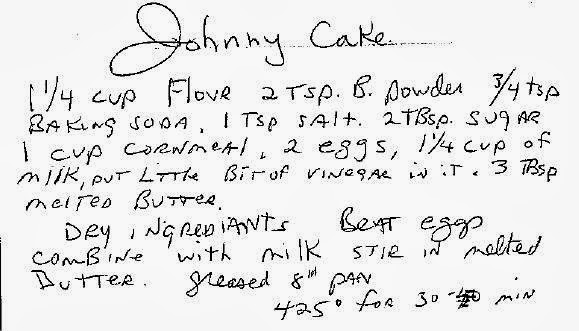 Johnny Cake
1 1/4 cup Flour 2 Tsp. B. powder 3/4 tsp
BAKING SODA, 1 Tsp SAlt. 2 TBsp. SUGAR
1 cup cornmeal, 2 eggs, 1 1/4 cup of
milk, put Little Bit of vinegar in it. 3 TBsp
melted Butter.
Dry, INgREDIANTS Beat eggs
comBiNe with milk stir in melted
Butter. greased 8" pan
425° for 30- min